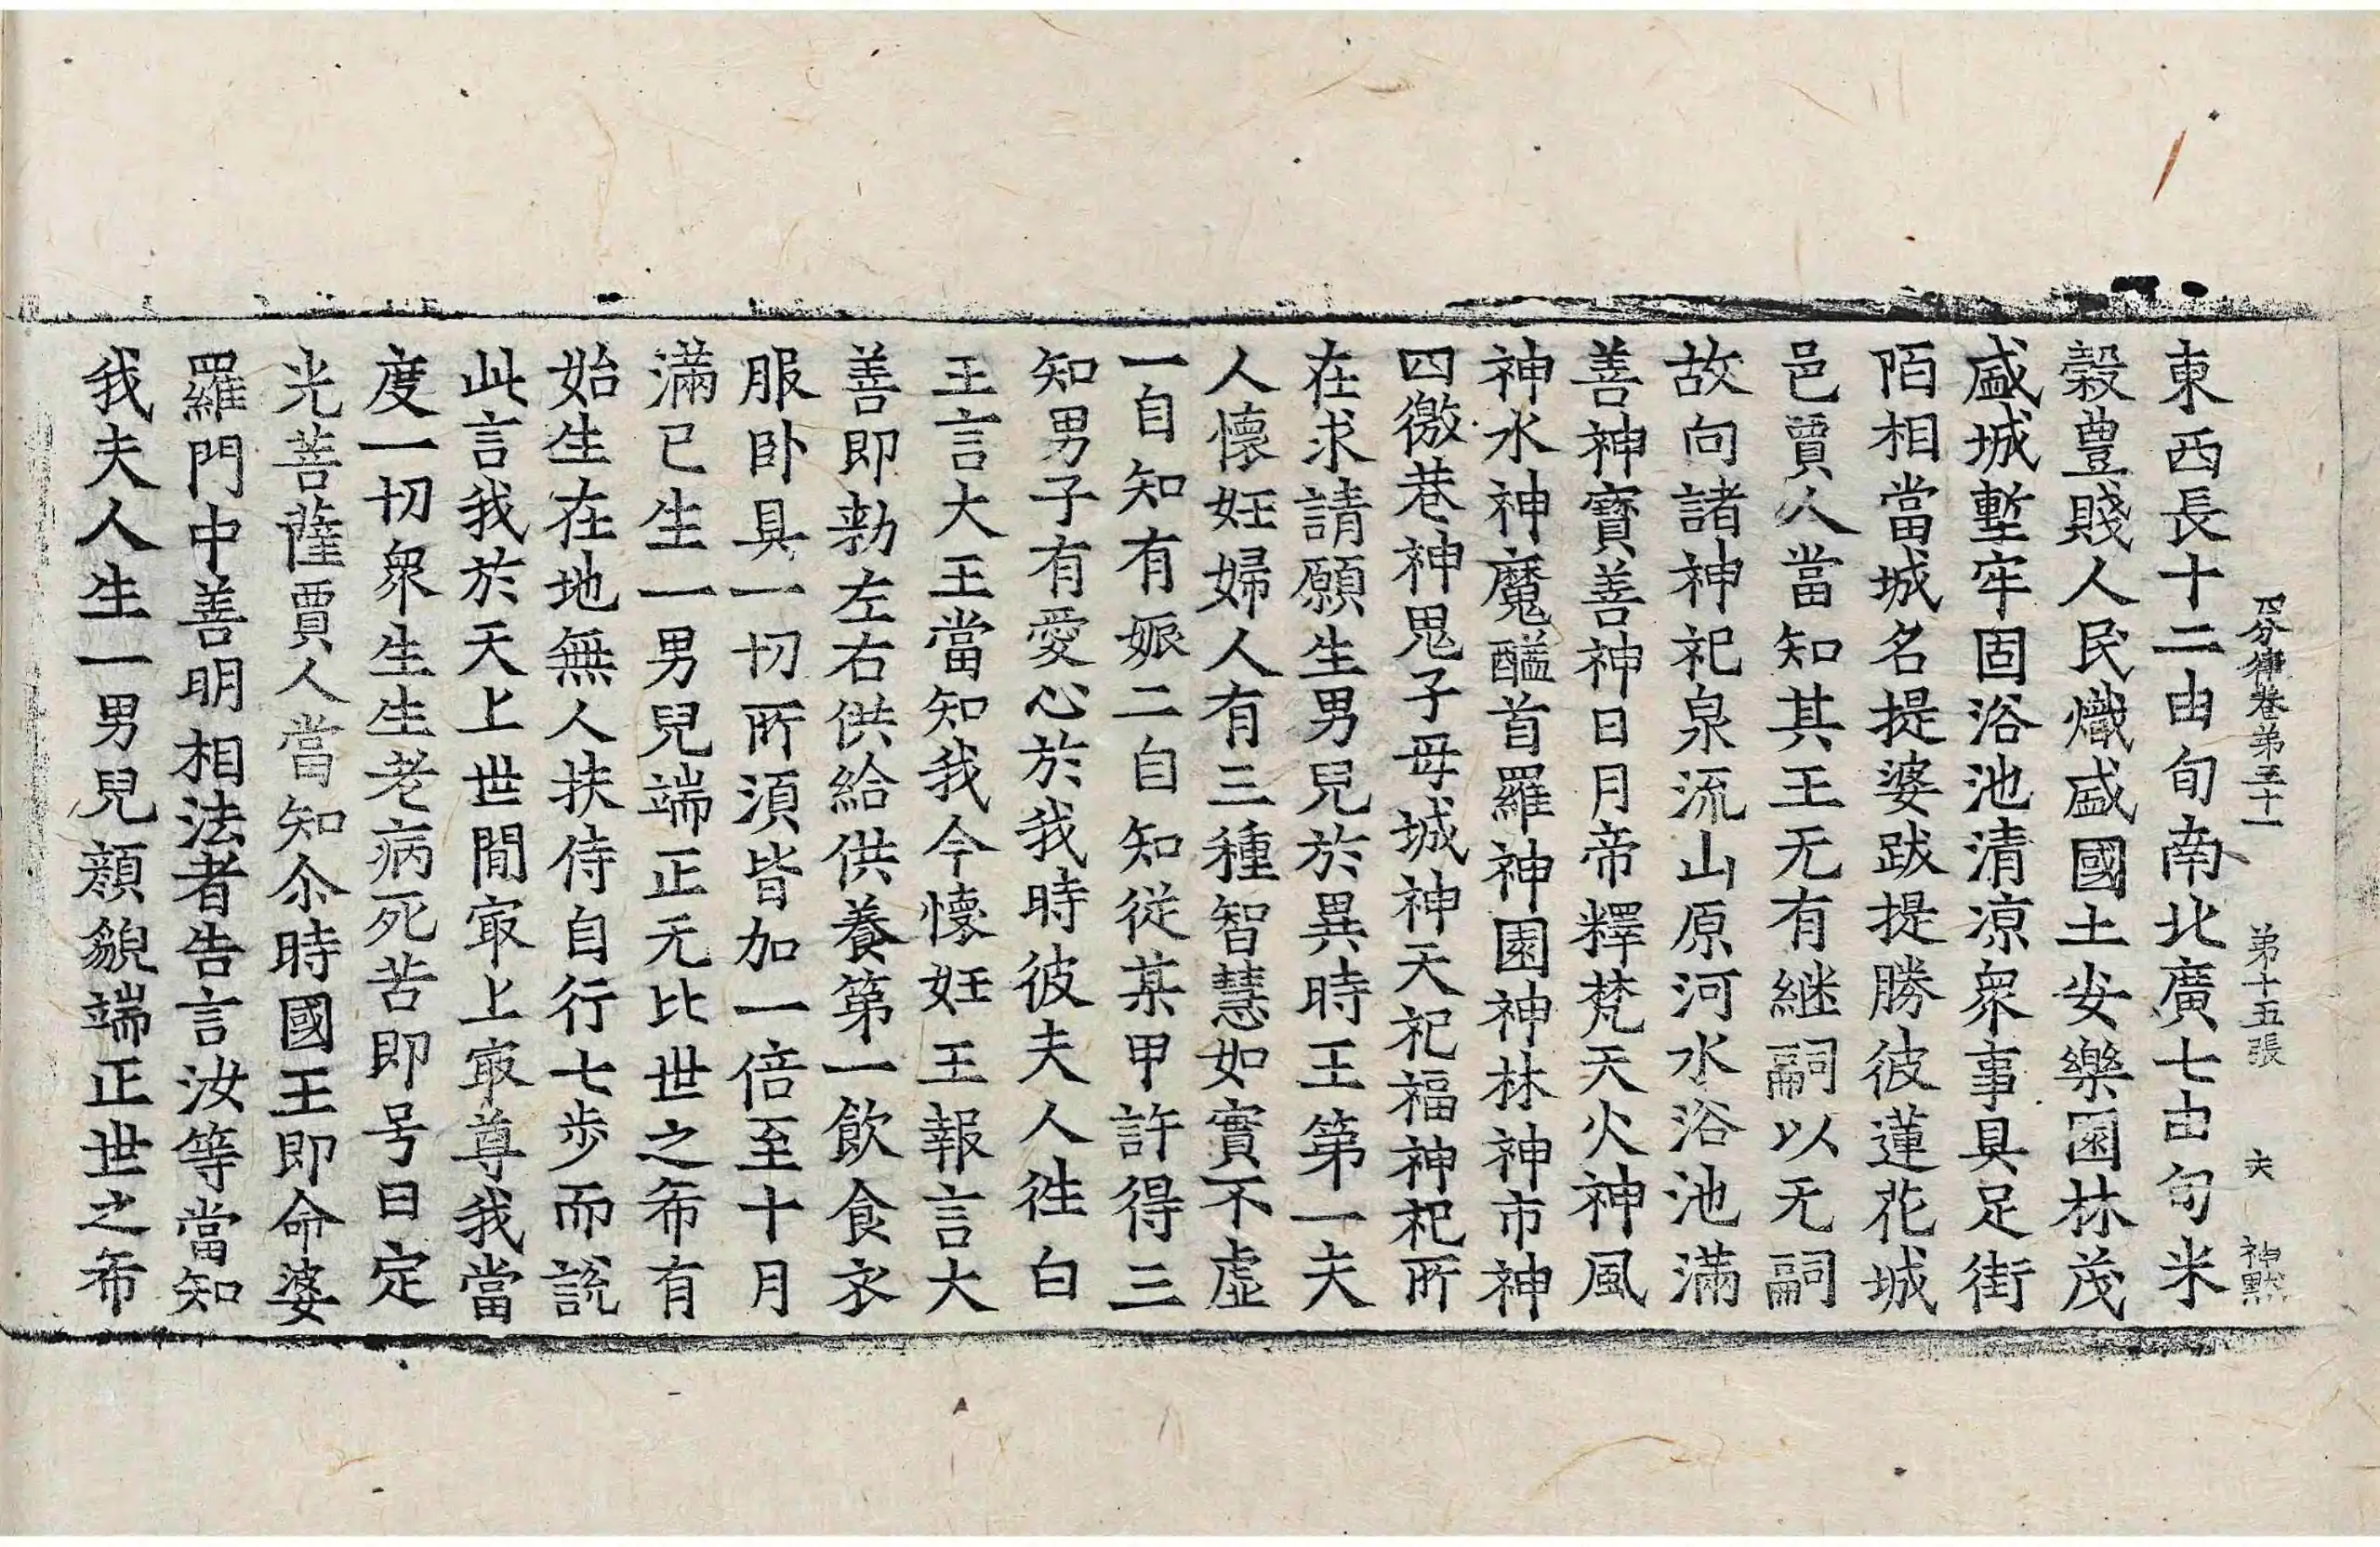 四分律卷第三十一　第十五張　夫　神黙
東西長十二由旬南北廣七由旬米
穀豊賤人民熾盛國土安樂園林茂
盛城壍牢固浴池清凉衆事具足街
陌相當城名提婆跋提勝彼蓮花城
邑賈人當知其王无有継嗣以无嗣
故向諸神祀泉流山原河水浴池滿
善神寶善神日月帝釋梵天火神風
神水神魔醯首羅神園神林神市神
四徼巷神鬼子母城神天祀福神祀所
在求請願生男兒於異時王第一夫
人懷妊婦人有三種智慧如實不虛
一自知有娠二自知從某甲許得三
知男子有愛心於我時彼夫人徃白
王言大王當知我今懷妊王報言大
善即勑左右供給供養第一飲食衣
服卧具一切所須皆加一倍至十月
滿已生一男兒端正无比世之希有
始生在地無人扶侍自行七步而說
此言我於天上世閒㝡上㝡尊我當
度一切衆生生老病死苦即号曰定
光菩薩賈人當知尒時國王即命婆
羅門中善明相法者告言汝等當知
我夫人生一男兒顏貌端正世之希